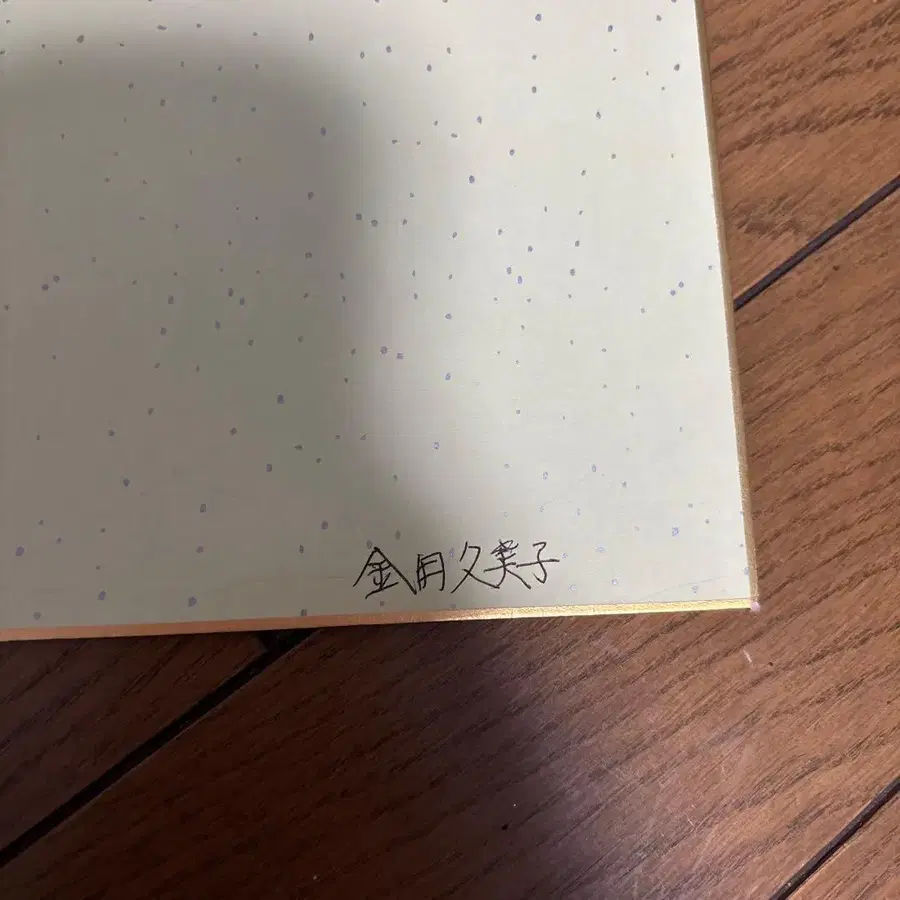 金田久美子